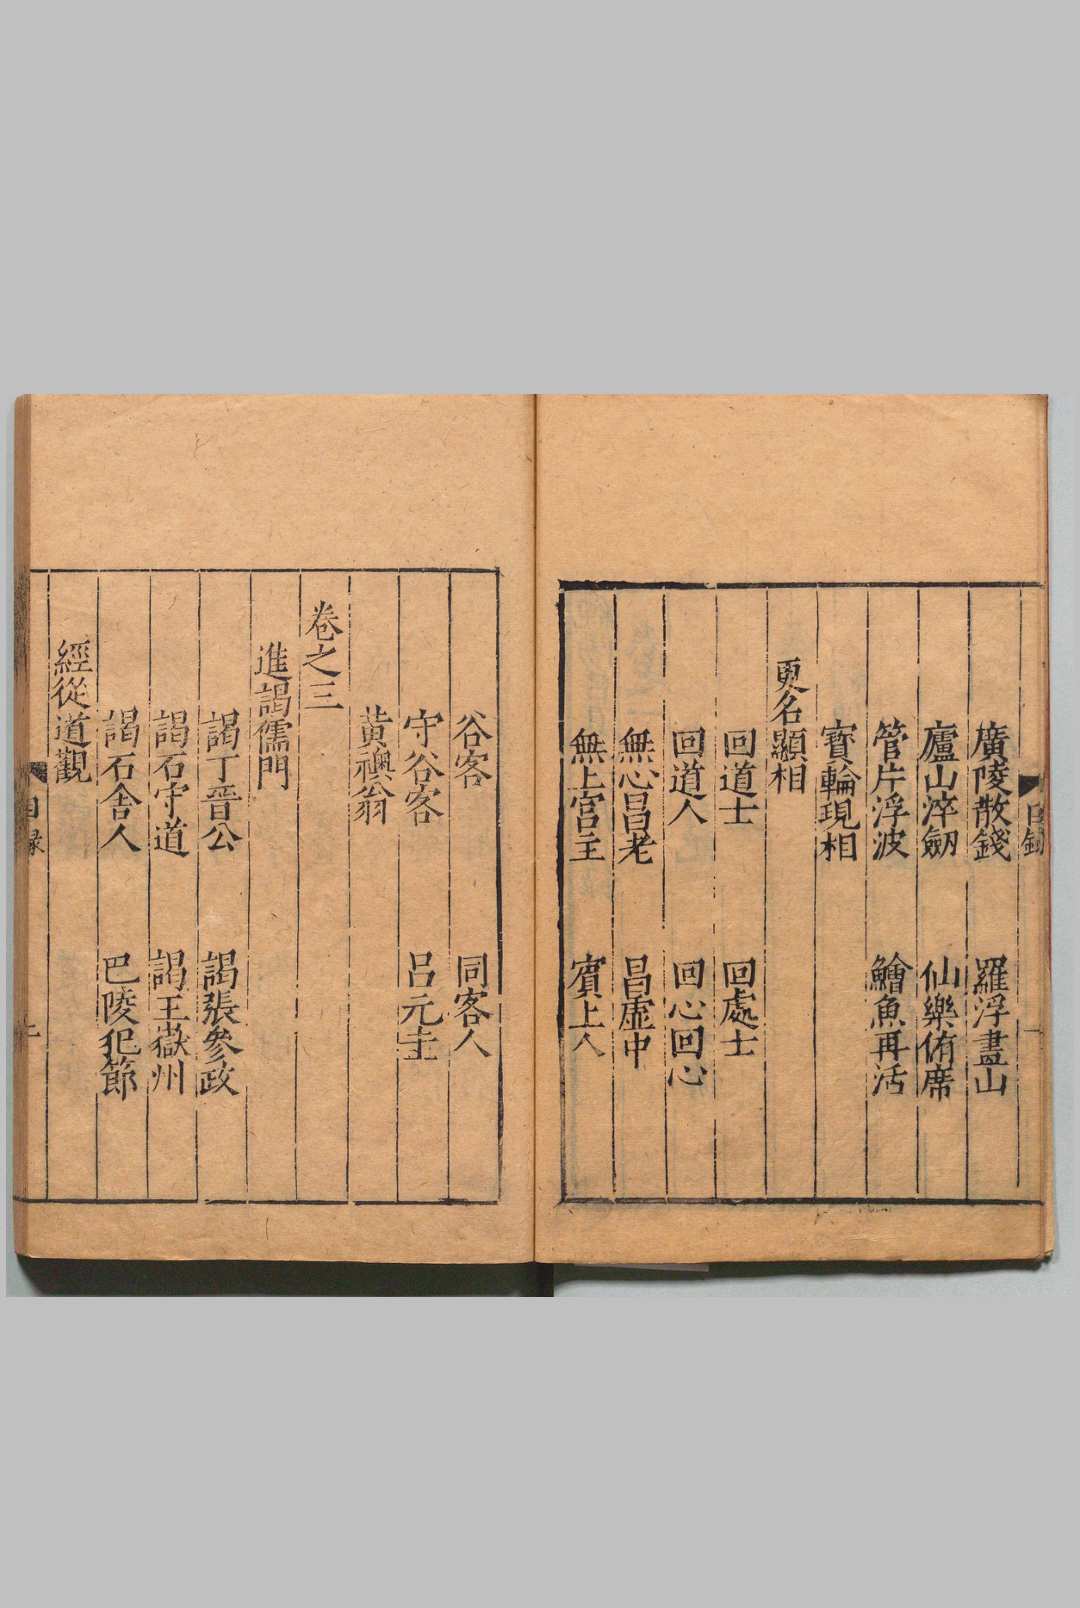 目錄
廣陵散錢 羅浮畫山
廬山淬劒 仙樂侑席
管片浮波 鱠魚再活
寶輪現相
更名顯相
回道士 回處士
回道人 回心回心
無心昌老 昌虛中
無上宮主 賓上人
谷客 同客人
守谷客 呂元圭
黃襖翁
卷之三
進謁儒門
謁丁晉公 謁張參政
謁石守道 謁王嶽州
謁石舍人 巴陵犯節
經從道觀
目録